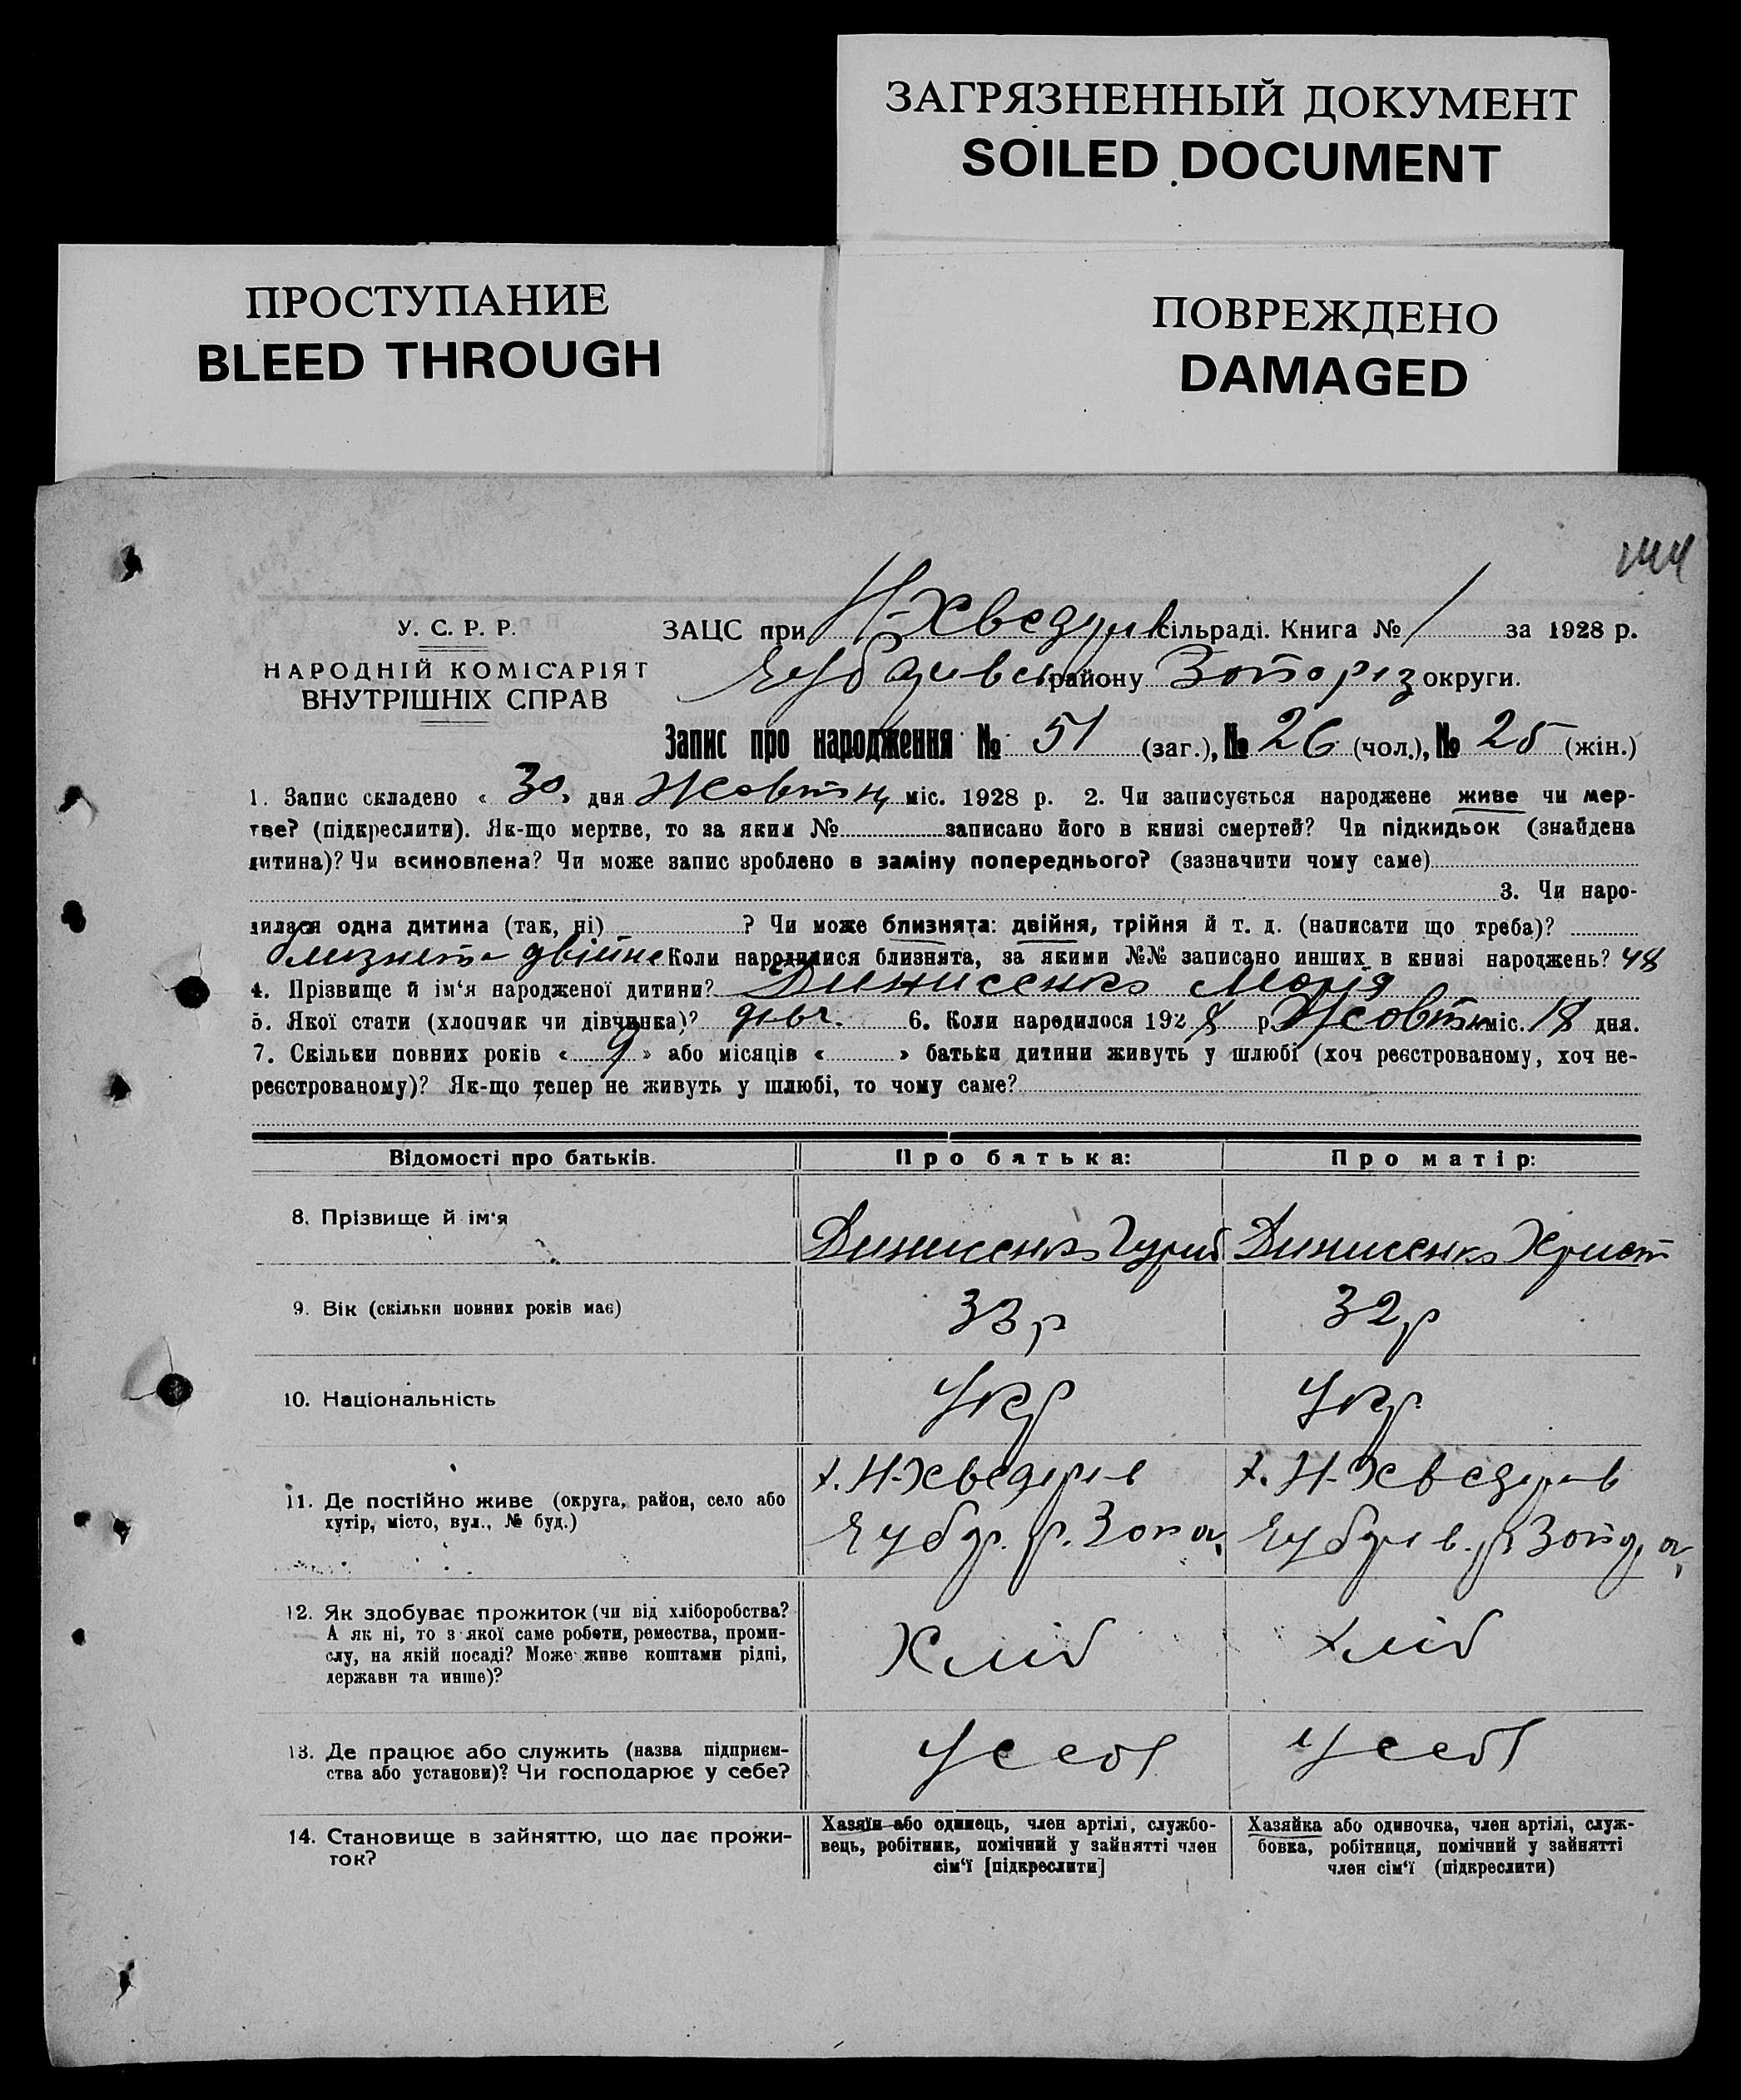 ЗАГРЯЗНЕННЫЙ ДОКУМЕНТ
SOILED DOCUMENT
ПРОСТУПАНИЕ
BLEED THROUGH
ПОВРЕЖДЕНО
DAMAGED
У. С. Р. Р.
НАРОДНІЙ КОМІСАРІЯТ
ВНУТРІШНІХ СПРАВ
ЗАЦС при Н-Хведорів сільраді. Книга № 1 за 1928 р.
району Запоріз округи.
Запис про народження № 51 (заг.), № 26 (чол.), № 25 (жін.)
1. Запис складено « 30 » дня Жовтня міс. 1928 р. 2. Чи записується народжене живе чи мер-
тве? (підкреслити). Як-що мертве, то за яким № записано його в книзі смертей? Чи підкидьок (знайдена
дитина)? Чи всиновлена? Чи може запис зроблено в заміну попереднього? (зазначити чому саме)
3. Чи наро-
дилася одна дитина (так, ні) ? Чи може близнята: двійня, трійня й т. д. (написати що треба)?
близнята двійня Коли народилися близнята, за якими №№ записано инших в книзі народжень? 48
4. Прізвище й ім‘я народженої дитини? Динисенко Марія
5. Якої стати (хлопчик чи дівчинка)? дівч. 6. Коли народилося 1928 р. Жовтн міс. 18 дня.
7. Скільки повних років « 9 » або місяців « » батьки дитини живуть у шлюбі (хоч реєстрованому, хоч не-
реєстрованому)? Як-що тепер не живуть у шлюбі, то чому саме?
Відомості про батьків. Про батька: Про матір:
8. Прізвище й ім‘я
Динисенко Динисенко Христ
9. Вік (скільки повних років має) 33 р 32 р
10. Національність Укр Укр
х. Н-Хведорів х. Н-Хведорів
11. Де постійно живе (округа, район, село або
хутір, місто, вул., № буд.)
12. Як здобуває прожиток (чи від хліборобства?
А як ні, то з якої саме роботи, ремества, проми-
слу, на якій посаді? Може живе коштами рідні,
держави та инше)?
Хліб хліб
13. Де працює або служить (назва підприєм-
ства або установи)? Чи господарює у себе?
У себя У себя
14. Становище в зайняттю, що дає прожи-
ток?
Хазяїн або одинець, член артілі, службо-
вець, робітник, помічний у зайнятті член
сім‘ї [підкреслити]
Хазяйка або одиночка, член артілі, служ-
бовка, робітниця, помічний у зайнятті
член сім‘ї (підкреслити)